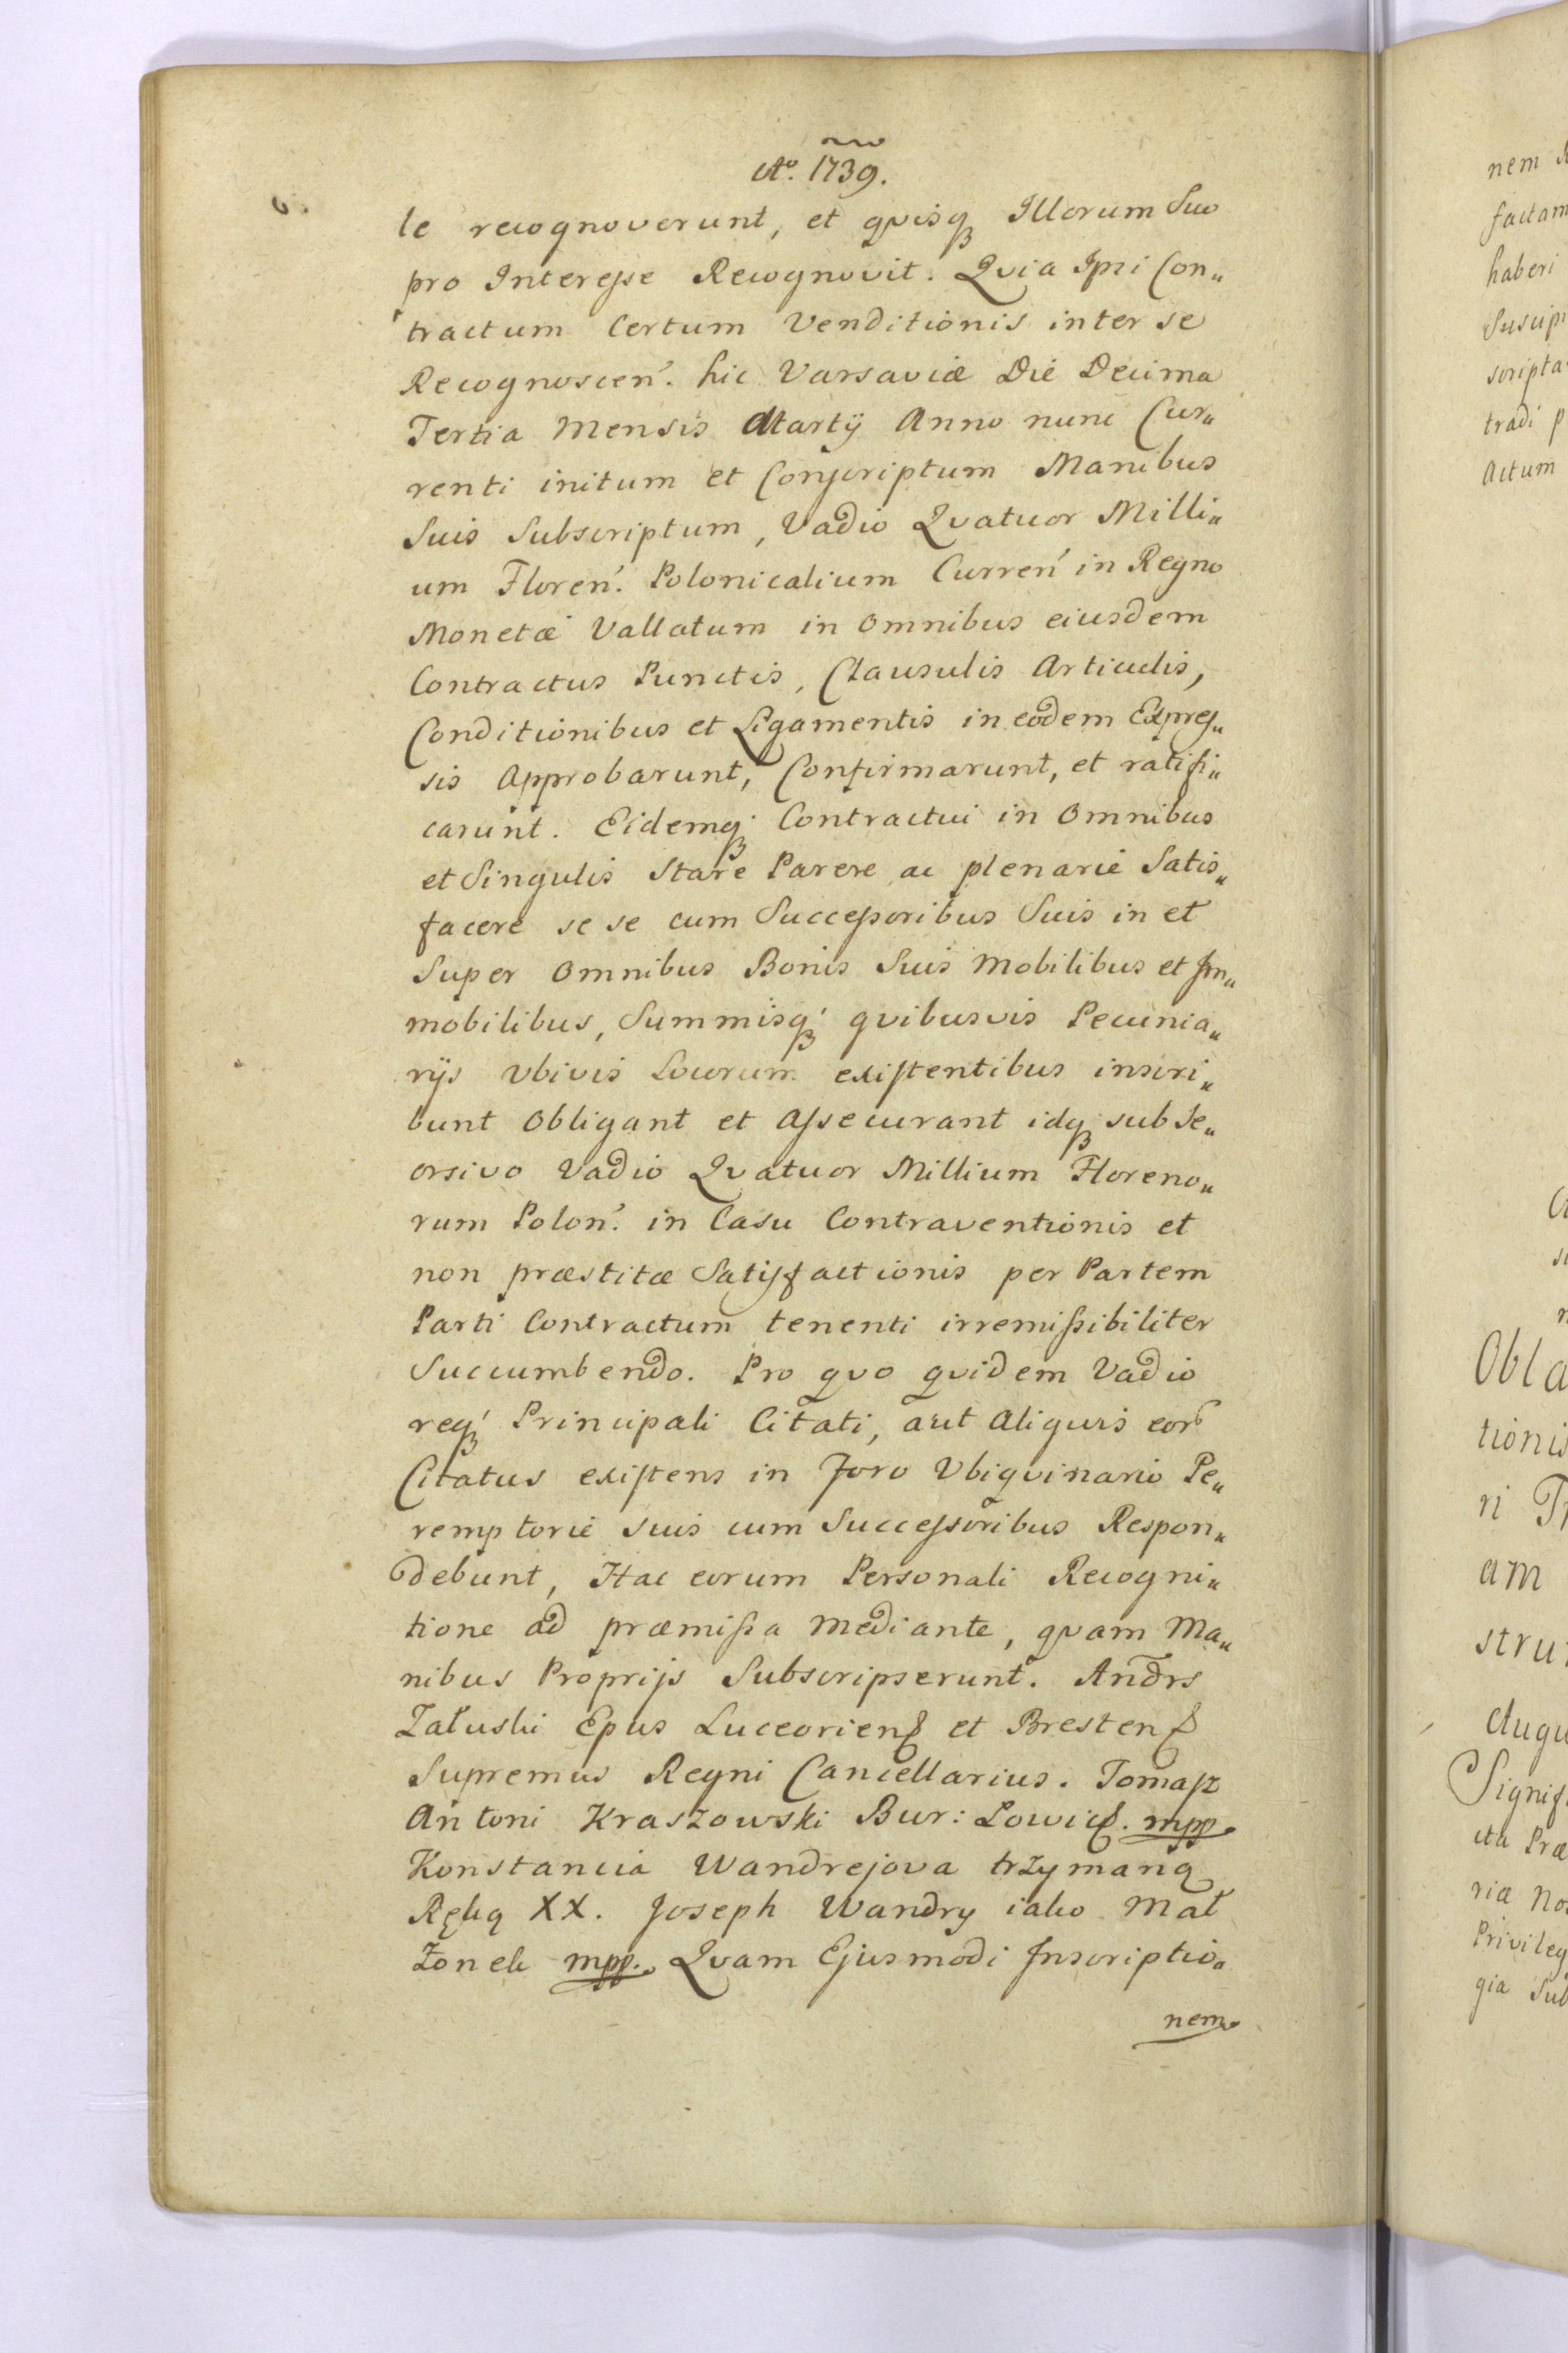 Aº. 1739.
6.
le recognoverunt, et qvisqꝫ Illorum Suo
pro Interesse Recognovit. Qvia Ipsi Con„
tractum Certum Venditionis inter se
Recognoscen̓. hic Varsaviæ Die Decima
Tertia Mensis Martÿ Anno nunc Cur„
renti initum et Conscriptum Manibus
Suis Subscriptum, Vadio Qvatuor Milli„
um Floren̓. Polonicalium Curren̓ in Regno
Monetæ Vallatum in Omnibus eiusdem
Contractus Punctis, Clausulis Articulis,
Conditionibus et Ligamentis in eodem Expres„
sis Approbarunt, Confirmarunt, et ratifi„
carunt. Eidemqꝫ Contractui in Omnibus
et Singulis Stare Parere ac plenarie Satis„
facere se se cum Successoribus Suis in et
Super Omnibus Bonis Suis Mobilibus et Im„
mobilibus, Summisqꝫ qvibusvis Pecunia„
rÿs Vbivis Locorum existentibus inscri„
bunt Obligant et Assecurant idqꝫ sub Se„
orsivo Vadio Qvatuor Millium Floreno„
rum Polon̓. in Casu Contraventionis et
non præstitæ Satisfactionis per Partem
Parti Contractum tenenti irremissibiliter
Succumbendo. Pro qvo qvidem Vadio
reqꝫ Principali Citati, aut Aliquis eor̓
Citatus existens in Foro Vbiqvinario Pe„
remptorie suis cum Successoribus Respon„
debunt, Hac eorum Personali Recogni„
tione ad præmissa Mediante, qvam Ma„
nibus Proprijs Subscripserunt. Andrs
Załuski Epus Luceorien et Bresten
Supremus Regni Cancellarius. Tomasz
Antoni Kraszowski Bur: Lowic. mpp
Konstancia Wandrejova trzymaną
Ręką XX. Joseph Wandry iako Mał
żonek mpp. Qvam Ejusmodi Inscriptio„
nem
nem
factam
haberi
Suscipi
scripta
tradi p
Actum
Obla
tionis
ri
am
stru
Augu
Signif
cta Præ
riæ No
Privileg
gia Sub